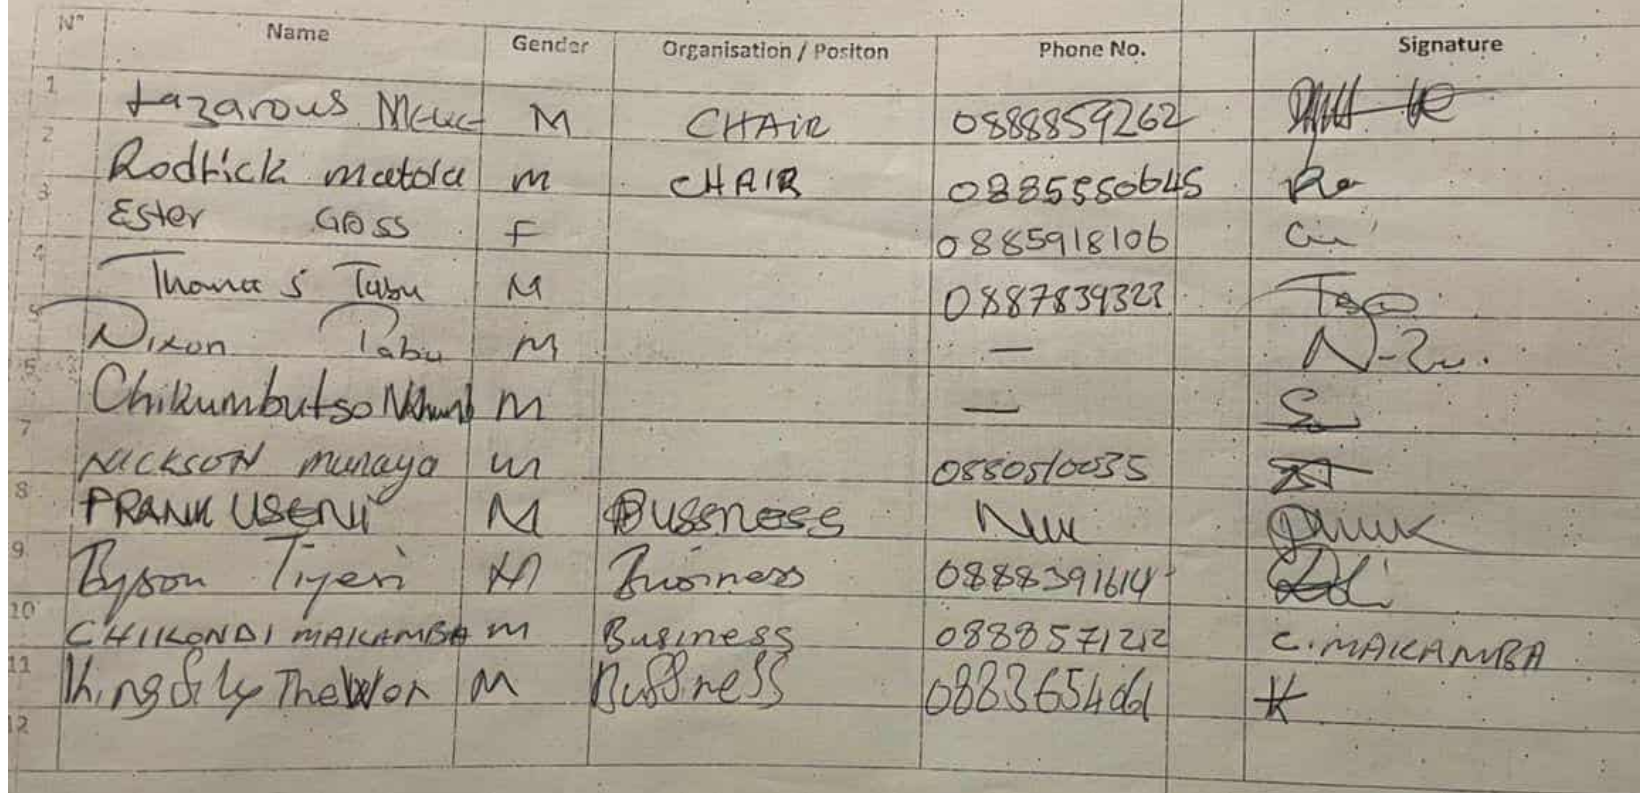 N° Name Gender Organisation / Positon Phone No. Signature
1 Lazarous M CHAIR 0888859262
2 Rodrick matola m CHAIR 0885550645
3 Ester GOSS F 0885918106
4 Thomas Tabu M 0887839323
5 Dixon Tabu M —
6 Chikumbutso m —
7 NICKSON munaya m 0880510035
8 FRANK USENI M BUSSNESS
9 Byson Tiyeri M Business 0888391614
10 CHIKONDI MAKAMBA m Business 0888571212 C. MAKAMBA
11 M Bussiness K
12